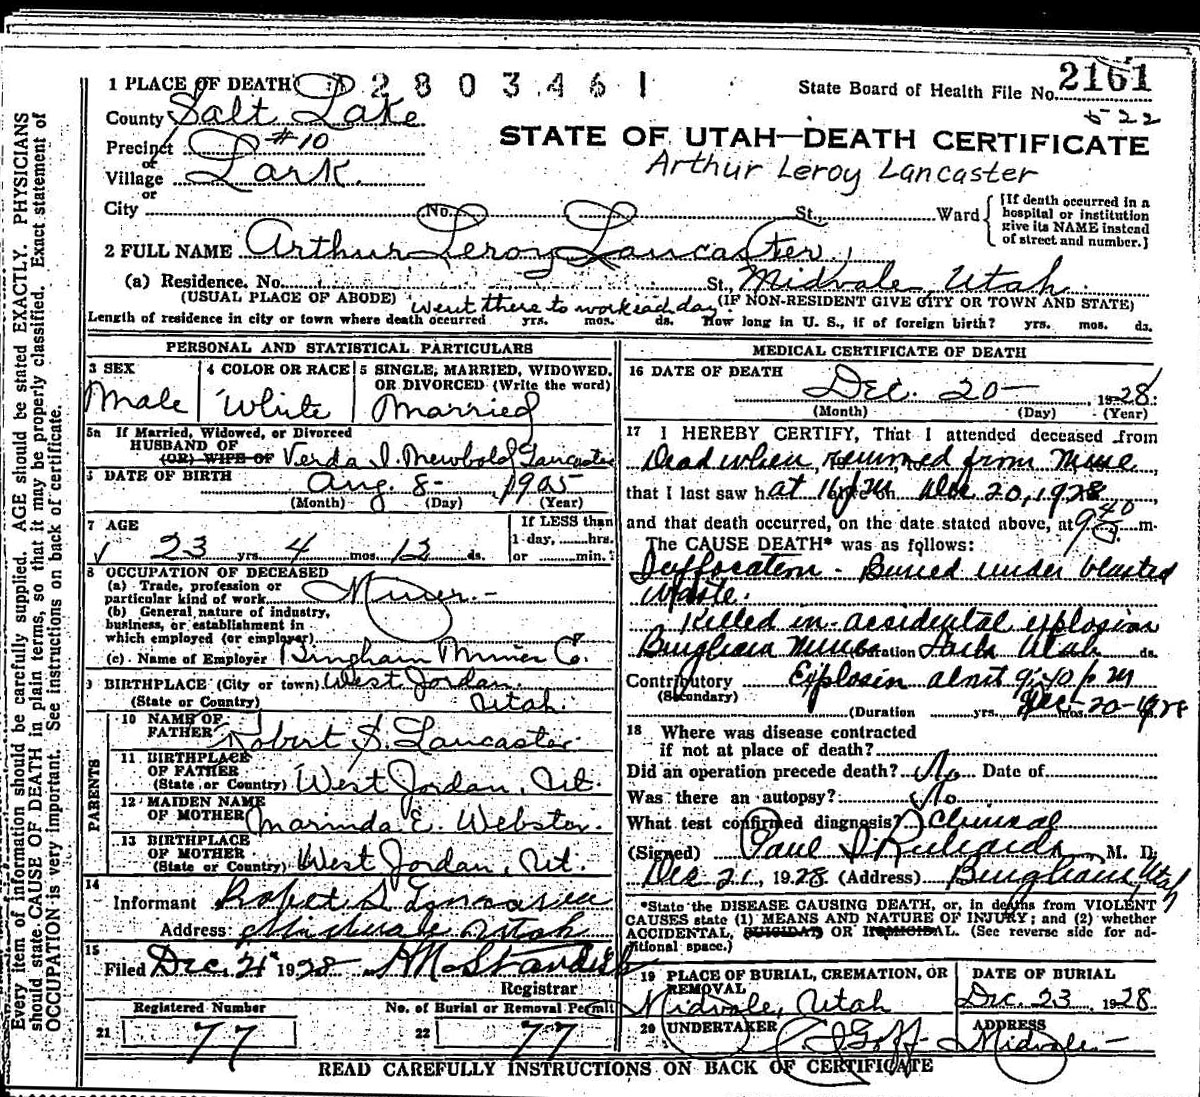 1 PLACE OF DEATH 2803461
State Board of Health File No. 2161
522
County Salt Lake
STATE OF UTAH—DEATH CERTIFICATE
Precinct #10
Arthur Leroy Lancaster
of
Village Lark
or
City No. St. Ward
[If death occurred in a
hospital or institution
give its NAME instead
of street and number.]
2 FULL NAME Arthur Leroy Lancaster
(a) Residence. No. St. Midvale, Utah.
(USUAL PLACE OF ABODE) Went there to work each day. (IF NON-RESIDENT GIVE CITY OR TOWN AND STATE)
Length of residence in city or town where death occurred yrs. mos. ds. How long in U. S., if of foreign birth? yrs. mos. ds.
PERSONAL AND STATISTICAL PARTICULARS
3 SEX
Male
4 COLOR OR RACE
White
5 SINGLE, MARRIED, WIDOWED,
OR DIVORCED (Write the word)
Married
5a If Married, Widowed, or Divorced
HUSBAND OF
(OR) WIFE OF Verda I. Newbold Lancaster
DATE OF BIRTH Aug 8- 1905
(Month) (Day) (Year)
7 AGE
23 yrs. 4 mos. 12 ds.
If LESS than
1 day, hrs.
or min.
8 OCCUPATION OF DECEASED
(a) Trade, profession or
particular kind of work Miner.-
(b) General nature of industry,
business, or establishment in
which employed (or employer)
(c) Name of Employer Bingham Mines Co.
9 BIRTHPLACE (City or town) West Jordan
(State or Country) Utah.
PARENTS
10 NAME OF
FATHER Robert S. Lancaster
11 BIRTHPLACE
OF FATHER
(State or Country) West Jordan, Ut.
12 MAIDEN NAME
OF MOTHER Marinda E. Webster.
13 BIRTHPLACE
OF MOTHER
(State or Country) West Jordan, Ut.
14
Informant Robert S Lancaster
Address Midvale Utah
15
Filed Dec. 21 1928 Standish
Registrar
Registered Number
21 77
No. of Burial or Removal Permit
22 77
MEDICAL CERTIFICATE OF DEATH
16 DATE OF DEATH
Dec. 20- 1928
(Month) (Day) (Year)
17 I HEREBY CERTIFY, That I attended deceased from
Dead when removed from Mine
that I last saw h at Dec 20, 1928
and that death occurred, on the date stated above, at 9 40 m.
The CAUSE DEATH* was as follows:
Suffocation - Buried under blasted
waste.
Killed in accidental explosion
Bingham Mines Duration Lark Utah ds.
Contributory Explosion about 9:40 p m
(Secondary)
(Duration yrs. mos. Dec-20-1928
18 Where was disease contracted
if not at place of death?
Did an operation precede death? No Date of
Was there an autopsy? No
What test confirmed diagnosis? Clinical
(Signed) Paul S Richards M. D.
Dec 21, 1928 (Address) Bingham, Utah
*State the DISEASE CAUSING DEATH, or, in deaths from VIOLENT
CAUSES state (1) MEANS AND NATURE OF INJURY; and (2) whether
ACCIDENTAL, SUICIDAL OR HOMICIDAL. (See reverse side for ad-
ditional space.)
19 PLACE OF BURIAL, CREMATION, OR
REMOVAL
Midvale, Utah
DATE OF BURIAL
Dec. 23 1928
20 UNDERTAKER
Goff
ADDRESS
Midvale.-
READ CAREFULLY INSTRUCTIONS ON BACK OF CERTIFICATE
Every item of information should be carefully supplied. AGE should be stated EXACTLY. PHYSICIANS
should state CAUSE OF DEATH in plain terms, so that it may be properly classified. Exact statement of
OCCUPATION is very important. See instructions on back of certificate.